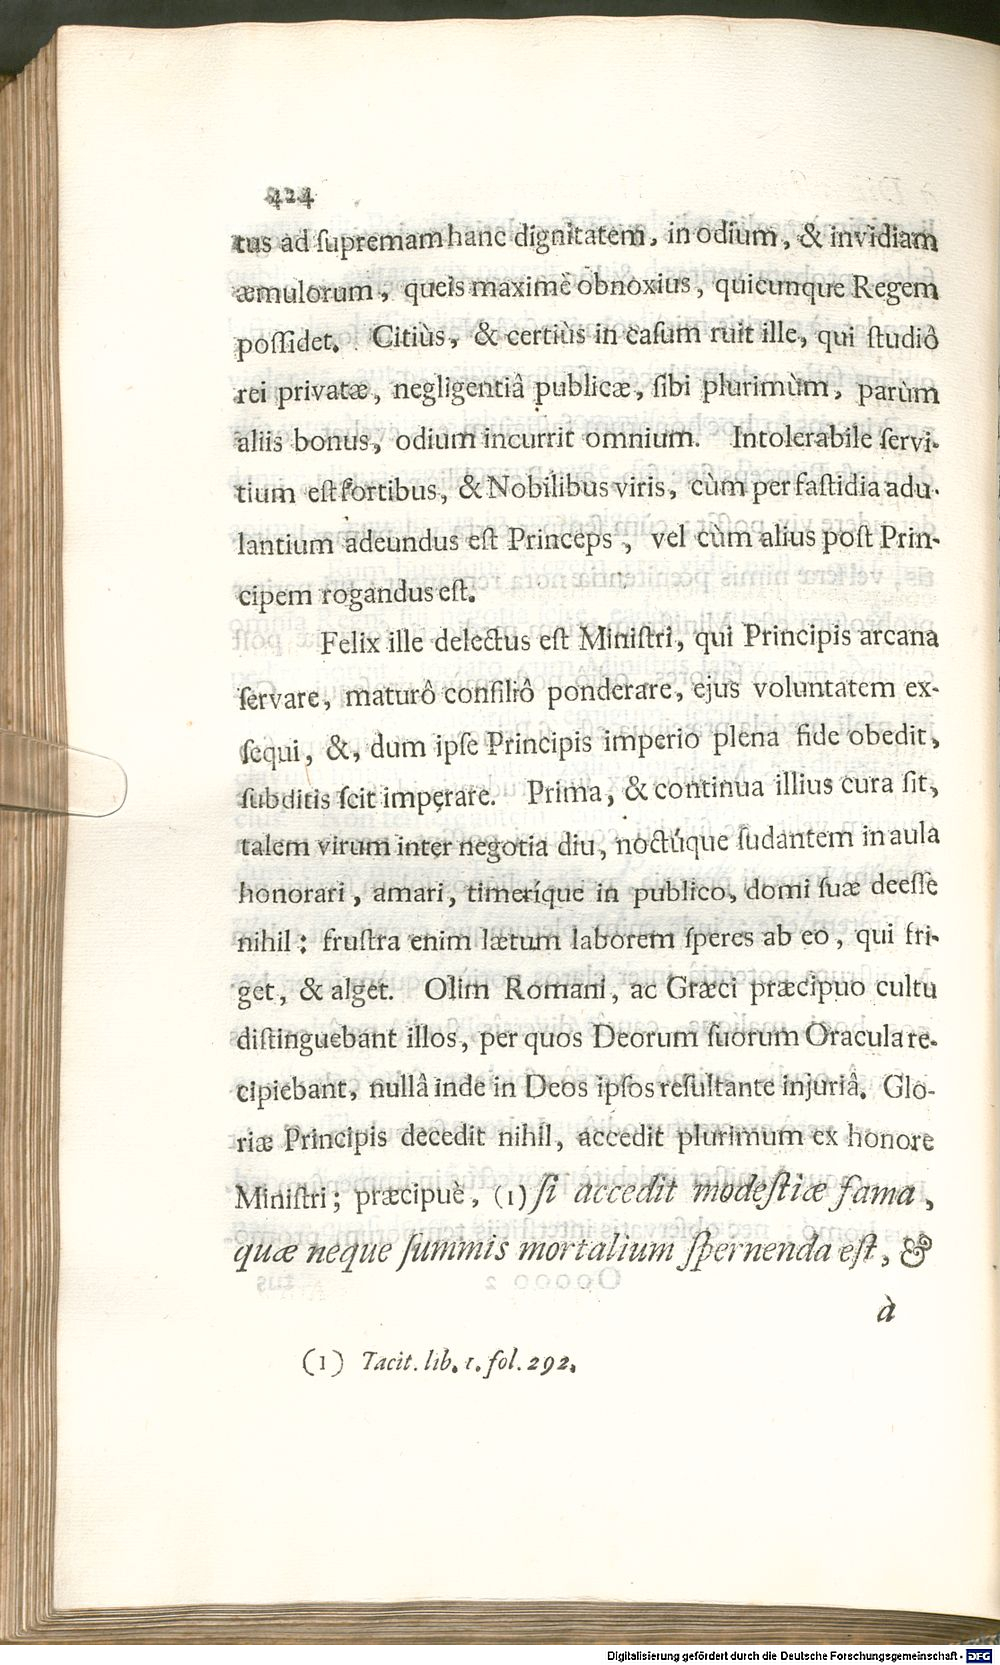 424
tus ad ſupremam hanc dignitatem, in odium, & invidiam
æmulorum, queis maximè obnoxius, quicunque Regem
poſſidet. Citiùs, & certiùs in caſum ruit ille, qui ſtudiô
rei privatæ, negligentiâ publicæ, ſibi plurimùm, parùm
aliis bonus, odium incurrit omnium. Intolerabile ſervi-
tium eſt fortibus, & Nobilibus viris, cùm per faſtidia adu-
lantium adeundus eſt Princeps, vel cùm alius poſt Prin-
cipem rogandus eſt.
Felix ille delectus eſt Miniſtri, qui Principis arcana
ſervare, maturô conſiliô ponderare, ejus voluntatem ex-
ſequi, &, dum ipſe Principis imperio plena fide obedit,
ſubditis ſcit imperare. Prima, & continua illius cura ſit,
talem virum inter negotia diu, noctúque ſudantem in aula
honorari, amari, timeríque in publico, domi ſuæ deeſſe
nihil: fruſtra enim lætum laborem ſperes ab eo, qui fri-
get, & alget. Olim Romani, ac Græci præcipuo cultu
diſtinguebant illos, per quos Deorum ſuorum Oracula re-
cipiebant, nullâ inde in Deos ipſos reſultante injuriâ. Glo-
riæ Principis decedit nihil, accedit plurimum ex honore
Miniſtri; præcipuè, (1) ſi accedit modeſtiæ fama,
quæ neque ſummis mortalium ſpernenda eſt, &
à
(1) Tacit. lib. 1. fol. 292.
Digitalisierung gefördert durch die Deutsche Forschungsgemeinschaft - DFG